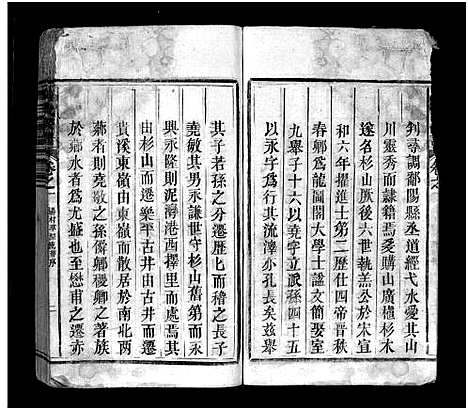 判尋調鄱陽縣丞道經弋水愛其山
川靈秀而隷籍焉爰購山廣植杉木
遂名杉山厥後六世執羔公於宋宣
和六年擢進士第二歷仕四帝晉秩
春卿爲龍圖閣大學士謚文簡娶室
九舉子十六以堯字立派孫四十五
以永字爲行其流澤亦孔長矣兹舉
其子若孫之分遷歷七而稽之長子
堯敏其男永謙世守杉山舊第而永
興永隆則泥灣港西擇里而處焉其
由杉山而遷樂平古井由古井而遷
貴溪東嶺由東嶺而散居於南城
薌者則堯敬之孫儕卿稷卿之著族
於薌水者爲尤盛也至懋甫之遷亦